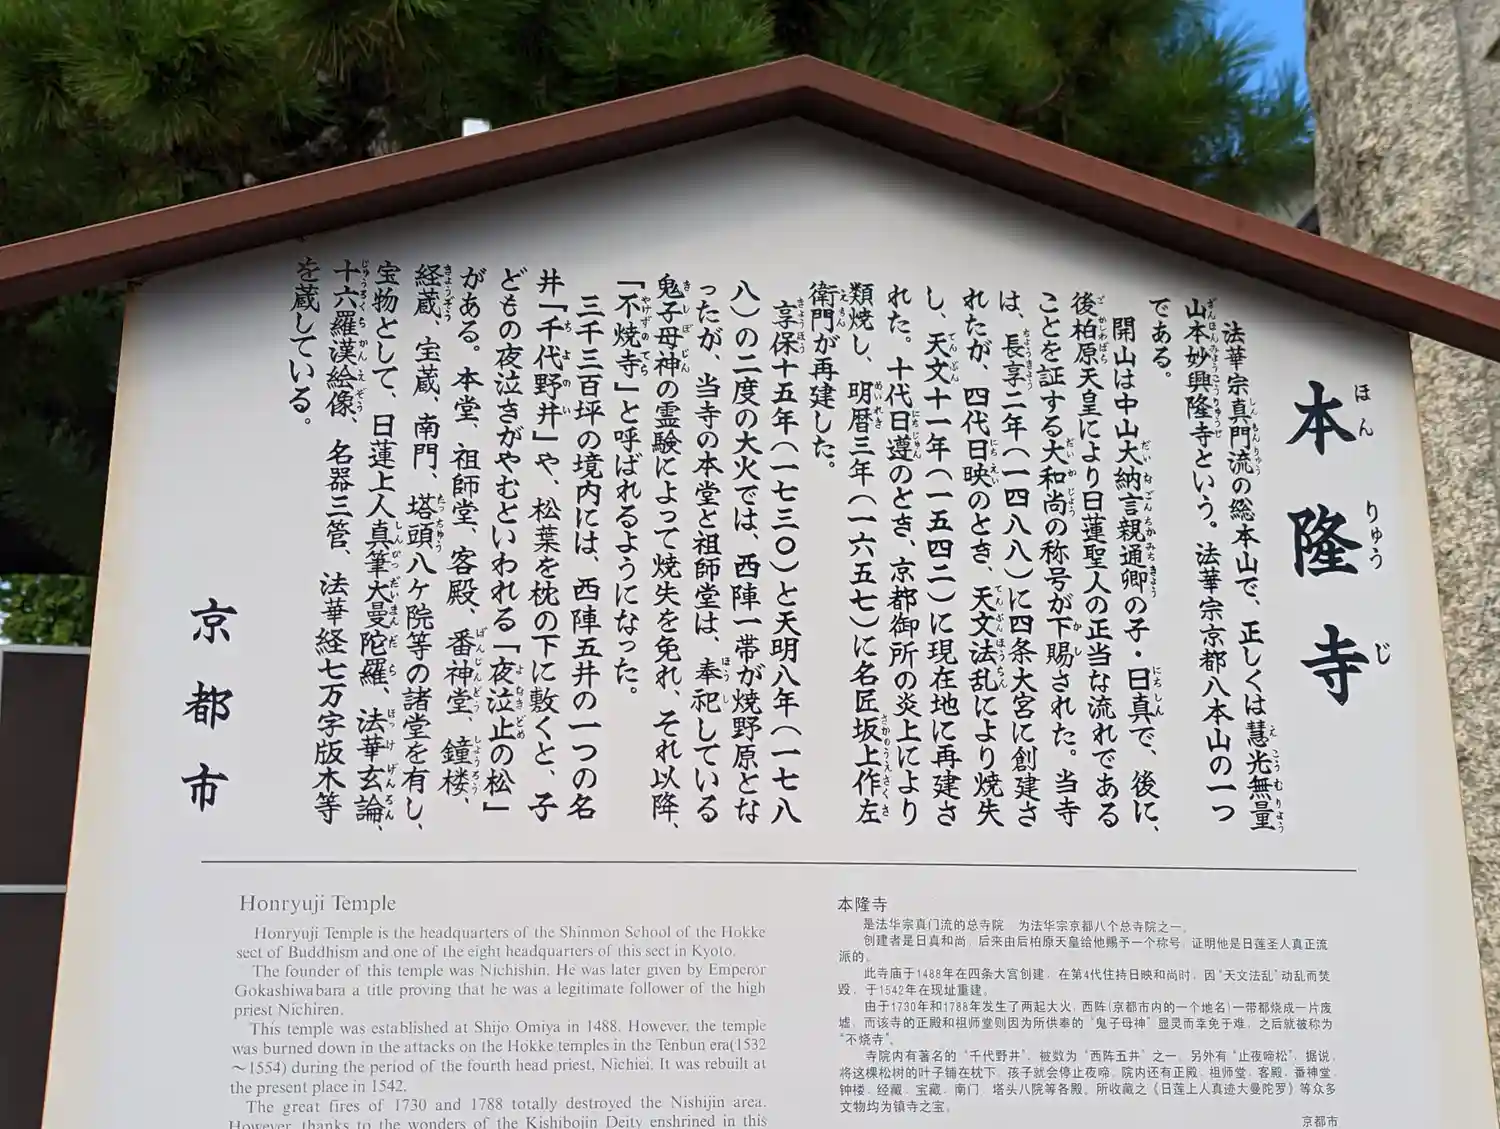 本隆寺
ほんりゅうじ
法華宗真門流の総本山で、正しくは慧光無量
山本妙興隆寺という。法華宗京都八本山の一つ
である。
開山は中山大納言親通卿の子・日真で、後に、
後柏原天皇により日蓮聖人の正当な流れである
ことを証する大和尚の称号が下賜された。当寺
は、長享二年(一四八八)に四条大宮に創建さ
れたが、四代日映のとき、天文法乱により焼失
し、天文十一年(一五四二)に現在地に再建さ
れた。十代日遵のとき、京都御所の炎上により
類焼し、明暦三年(一六五七)に名匠坂上作左
衛門が再建した。
享保十五年(一七三〇)と天明八年(一七八
八)の二度の大火では、西陣一帯が焼野原とな
ったが、当寺の本堂と祖師堂は、奉祀している
鬼子母神の霊験によって焼失を免れ、それ以降、
「不焼寺」と呼ばれるようになった。
三千三百坪の境内には、西陣五井の一つの名
井「千代野井」や、松葉を枕の下に敷くと、子
どもの夜泣きがやむといわれる「夜泣止の松」
がある。本堂、祖師堂、客殿、番神堂、鐘楼、
経蔵、宝蔵、南門、塔頭八ケ院等の諸堂を有し、
宝物として、日蓮上人真筆大曼陀羅、法華玄論、
十六羅漢絵像、名器三管、法華経七万字版木等
を蔵している。
京都市
Honryuji Temple
Honryuji Temple is the headquarters of the Shinmon School of the Hokke
sect of Buddhism and one of the eight headquarters of this sect in Kyoto.
The founder of this temple was Nichishin. He was later given by Emperor
Gokashiwabara a title proving that he was a legitimate follower of the high
priest Nichiren.
This temple was established at Shijo Omiya in 1488. However, the temple
was burned down in the attacks on the Hokke temples in the Tenbun era(1532
～1554) during the period of the fourth head priest, Nichiei. It was rebuilt at
the present place in 1542.
The great fires of 1730 and 1788 totally destroyed the Nishijin area.
However, thanks to the wonders of the Kishibojin Deity enshrined in this
本隆寺
是法华宗真门流的总寺院，为法华宗京都八个总寺院之一。
创建者是日真和尚，后来由后柏原天皇给他赐予一个称号，证明他是日莲圣人真正流
派的。
此寺庙于1488年在四条大宫创建，在第4代住持日映和尚时，因“天文法乱”动乱而焚
毁，于1542年在现址重建。
由于1730年和1788年发生了两起大火，西阵(京都市内的一个地名)一带都烧成一片废
墟，而该寺的正殿和祖师堂则因为所供奉的“鬼子母神”显灵而幸免于难，之后就被称为
“不烧寺”。
寺院内有著名的“千代野井”，被数为“西阵五井”之一。另外有“止夜啼松”，据说，
将这棵松树的叶子铺在枕下，孩子就会停止夜啼。院内还有正殿、祖师堂、客殿、番神堂、
钟楼、经藏、宝藏、南门、塔头八院等各殿。所收藏之《日莲上人真迹大曼陀罗》等众多
文物均为镇寺之宝。
京都市